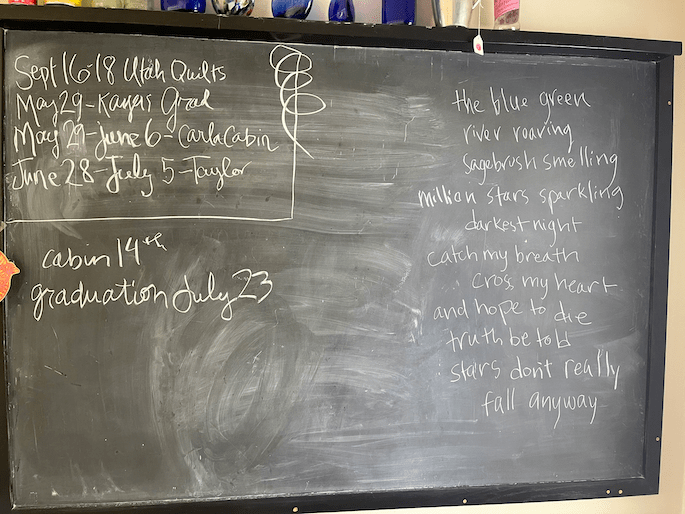 Sept 16-18 Utah Quilts
May 29-Kayas Grad
May 29-June 6-Carla Cabin
June 28-July 5-Taylor
cabin 14th
graduation July 23
the blue green
river roaring
sagebrush smelling
million stars sparkling
darkest night
catch my breath
cross my heart
and hope to die
truth be told
stars don't really
fall anyway